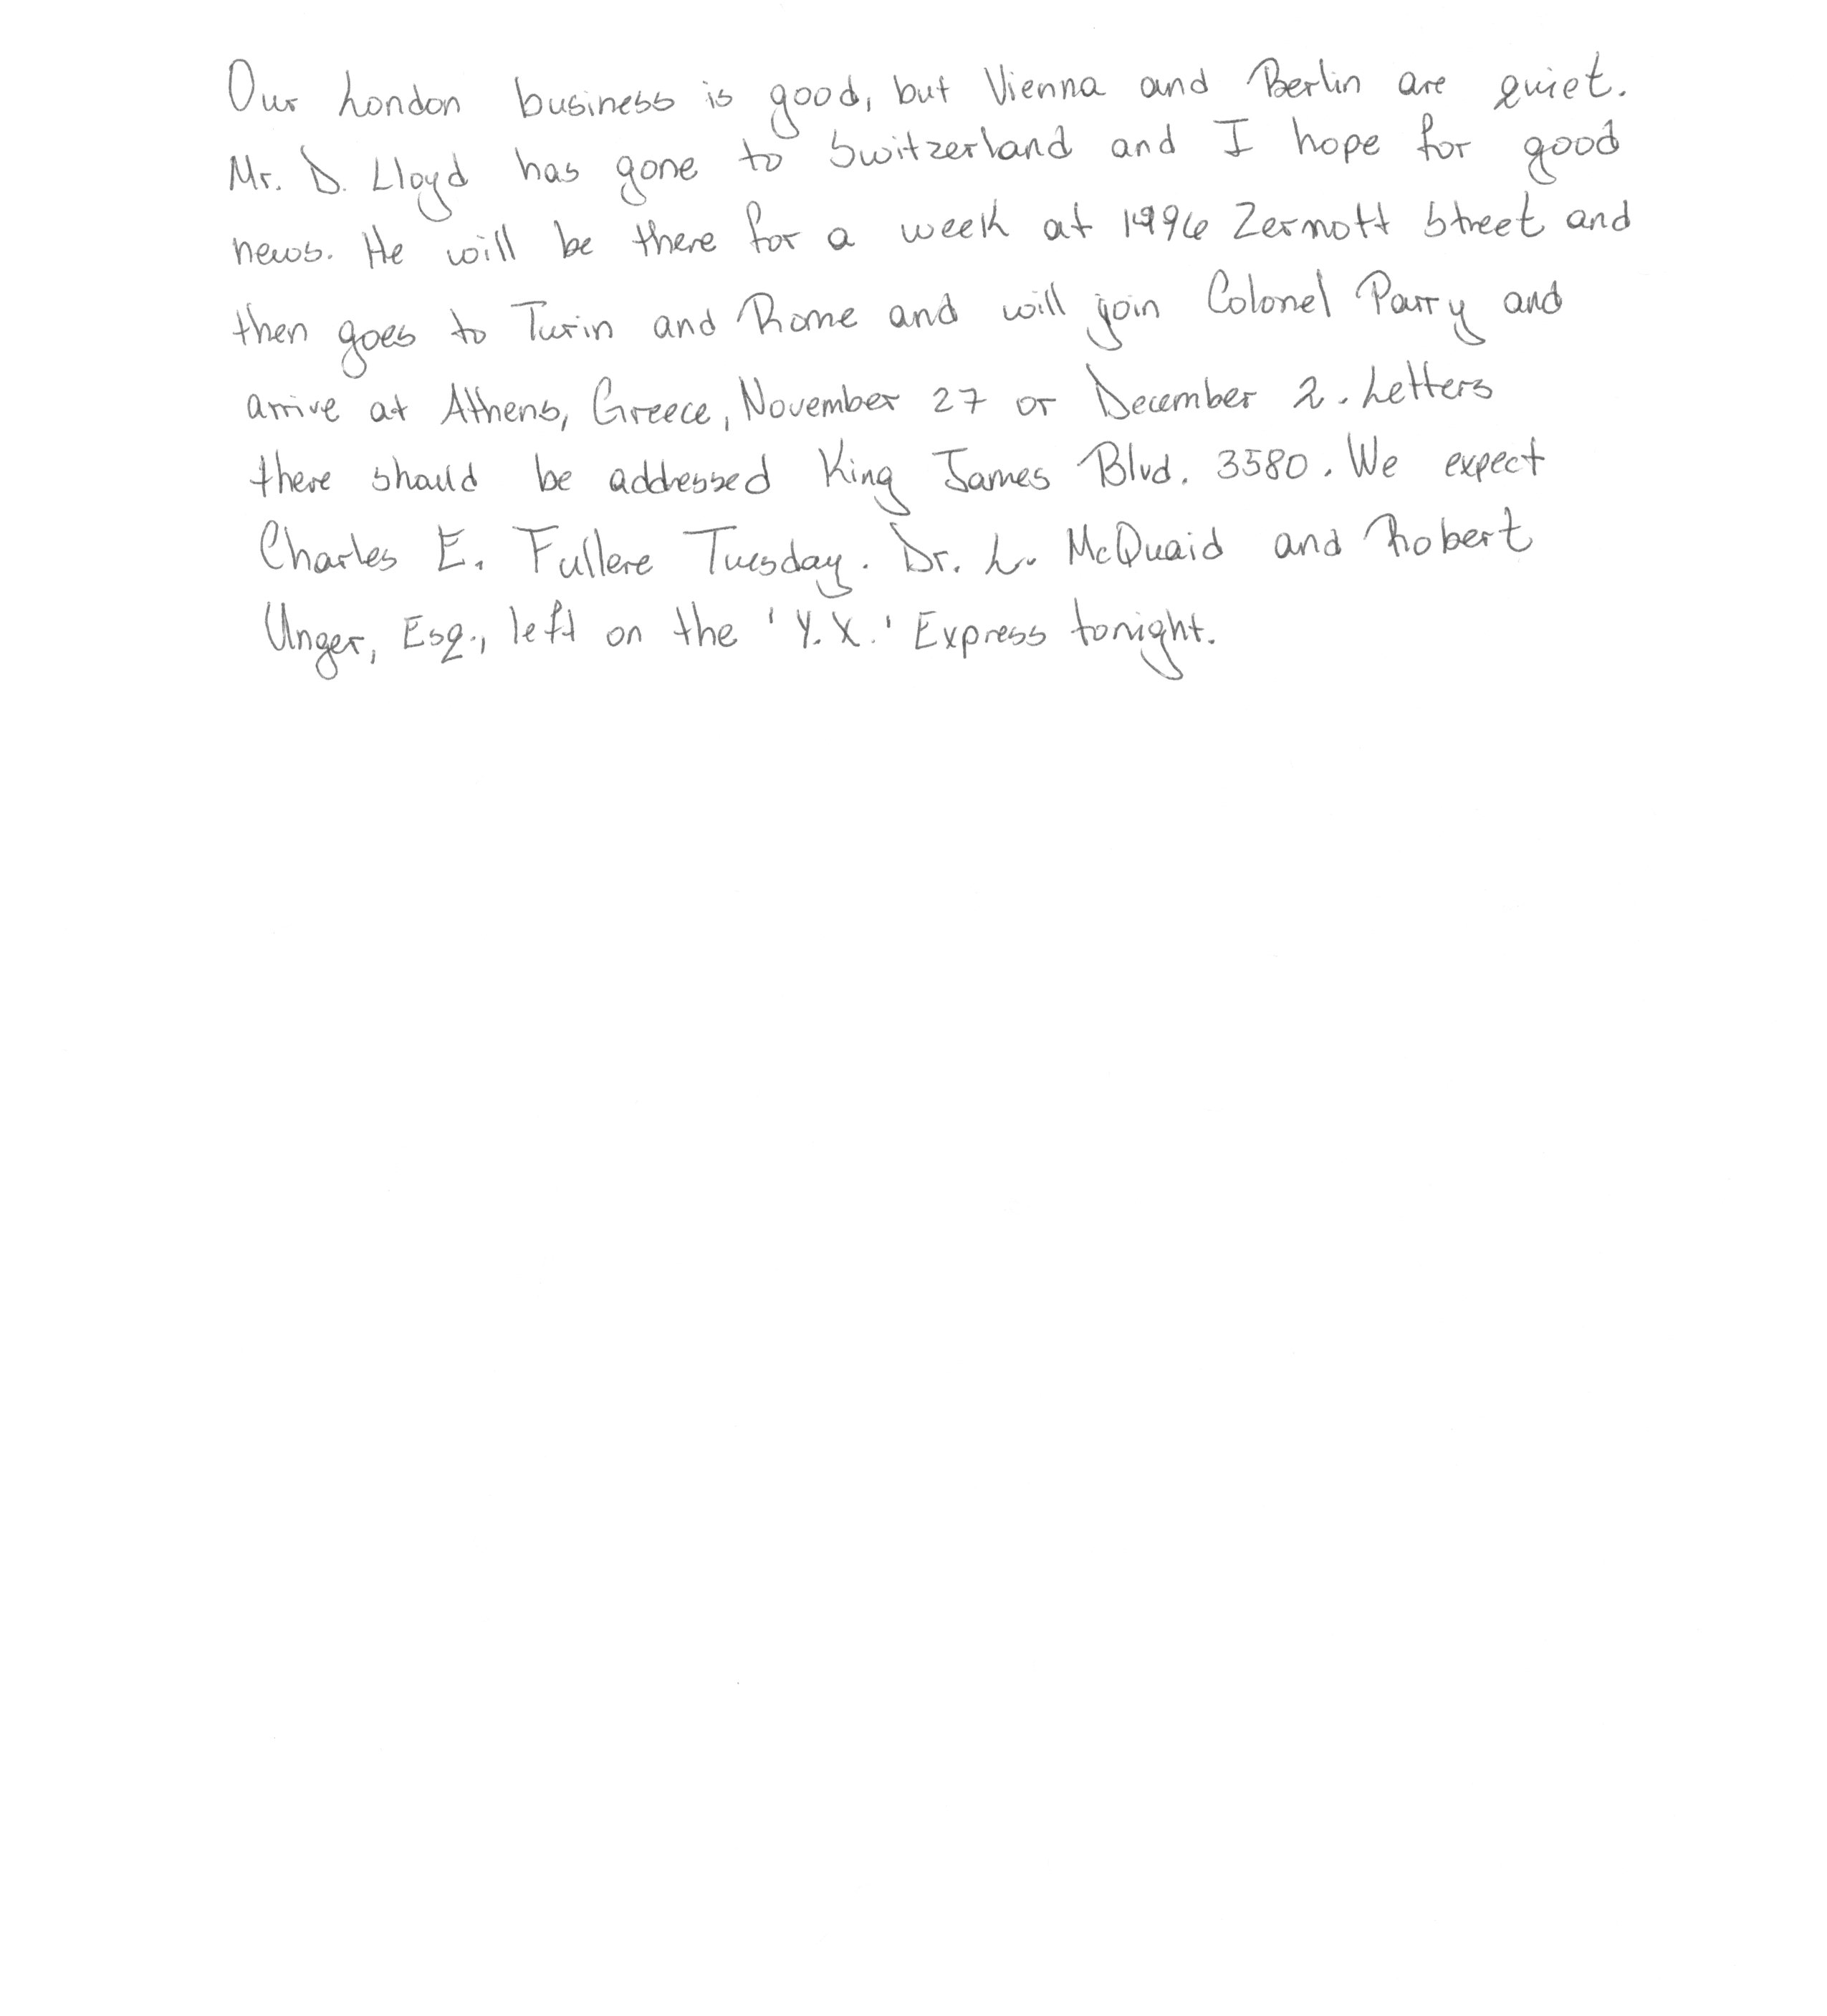 Our London business is good, but Vienna and Berlin are quiet.
Mr. D. Lloyd has gone to Switzerland and I hope for good
news. He will be there for a week at 1996 Zermott Street and
then goes to Turin and Rome and will join Colonel Parry and
arrive at Athens, Greece, November 27 or December 2. Letters
there should be addressed King James Blvd. 3580. We expect
Charles E. Fullere Tuesday. Dr. L. McQuaid and Robert
Unger, Esq., left on the 'Y.X.' Express tonight.